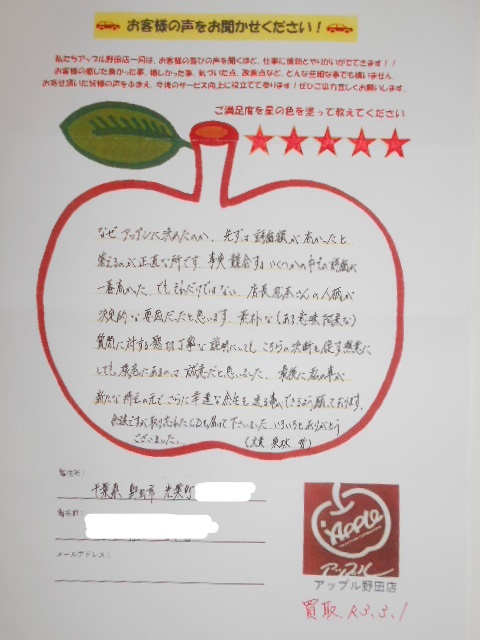 お客様の声をお聞かせください！
私たちアップル野田店一同は、お客様の喜びの声を聞くほど、仕事に情熱とやりがいがでてきます！！
お客様の感じた良かった事、嬉しかった事、気づいた点、改善点など、どんな些細な事でも構いません。
お寄せ頂いた皆様の声をふまえ、今後のサービス向上に役立てて参ります！ぜひご協力宜しくお願いします。
ご満足度を星の色を塗って教えてください
なぜアップルに決めたのか、先ずは評価額が高かったと
答えるのが正直な所です。事実競合するいくつかの中で評価が
一番高かった。でもそれだけではない。店長さんの人柄が
決定的な要因だったと思います。素朴な(ある意味阿呆な)
質問に対する懇切丁寧な説明にしても、こちらの決断を促す熱意に
しても根底にあるのは誠実だと思いました。最後に私の車が
新たな持主の元でさらに幸運な余生を送る事ができるよう願っております。
取り忘れたCDも届けて下さいました。いろいろとありがとう
ございました。
ご住所：
千葉県 野田市 光葉町
お名前：
メールアドレス：
APPLE
アップル
アップル野田店
買取 R3.3.1